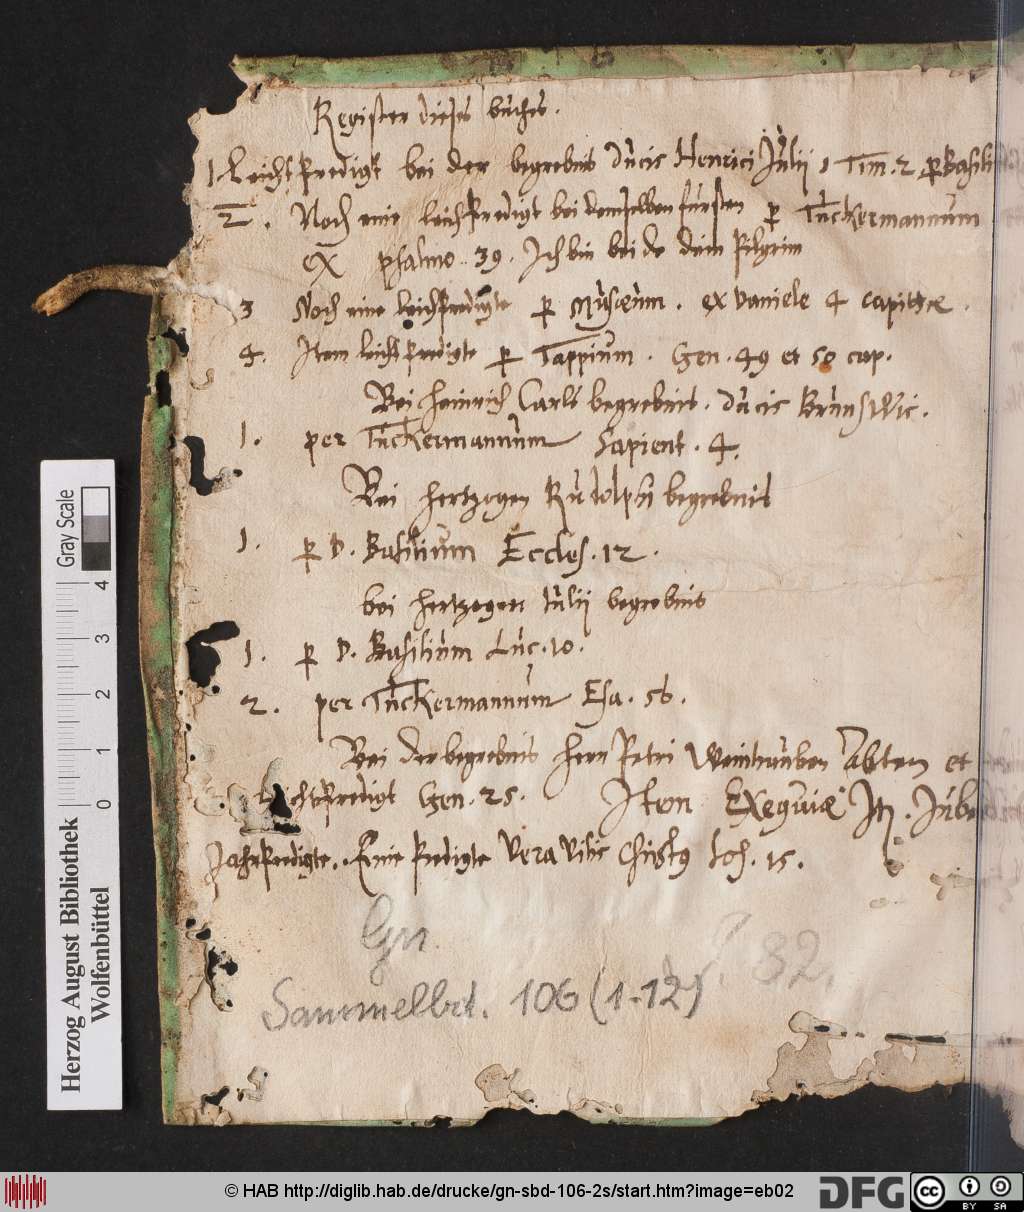 Register dieses buches.
1. Leichtpredigt bei der begrebnis Ducis Henrici Julij 1 Tim. 2 per Basili
2. Noch eine leichpredigt bei demselben fürsten per Tuckermannum
ex psalmo 39. Ich bin beide dein Pilgrim
3 Noch eine leichpredigte per Musæum. ex Daniele 4 capitte.
4. Item leichtpredigte per Tappium. Gen. 49 et 50 cap.
Bei Heinrich Carls begrebnis. Ducis Brunswic.
1. per Tuckermannum Sapient. 4.
Bei hertzogen Rudolphi begrebnis
1. per D. Basilium Eccles. 12.
bei hertzogen Julij begrebnis
1. per D. Basilium Luc. 10.
2. per Tuckermannum Esa. 56.
Bei der begrebnis hern Petri Weintrauben Abten et
chtpredigt Gen. 25. Item Exequiæ It.
Eine predigte Vera Vitis Christus Joh. 15.
Gn
Sammelbd. 106 (1-12)
82.
Gray Scale
0 1 2 3 4
Herzog August Bibliothek
Wolfenbüttel
© HAB http://diglib.hab.de/drucke/gn-sbd-106-2s/start.htm?image=eb02
DFG
cc BY SA